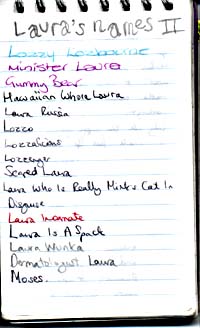 Laura's Names II
Lozzy Lozbourne
Minister Laura
Gummy Bear
Hawaiian Whore Laura
Laura Russia
Lozco
Lozzalicious
Lozenger
Scared Laura
Laura Who Is Really Minty Cat In
Disguise
Laura Incarnate
Laura Is A Spack
Laura Wunka
Dermatologist Laura
Moses.